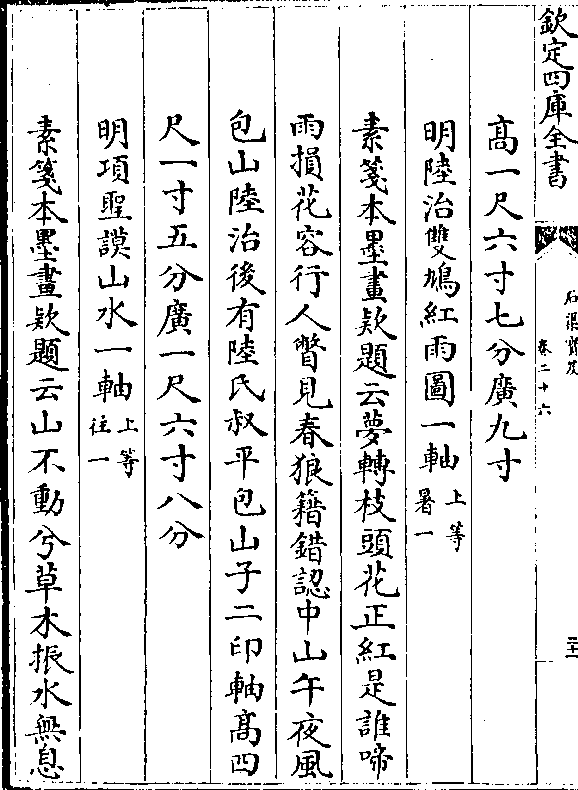 欽定四庫全書
石渠寶笈
卷二十六
二十一
高一尺六寸七分廣九寸
明陸治雙鳩紅雨圖一軸上等暑一
素箋本墨畫欵題云夢轉枝頭花正紅是誰啼
雨損花容行人瞥見春狼籍錯認中山午夜風
包山陸治後有陸氏叔平包山子二印軸髙四
尺一寸五分廣一尺六寸八分
明項聖謨山水一軸上等往一
素箋本墨畫欵題云山不動兮草木振水無息